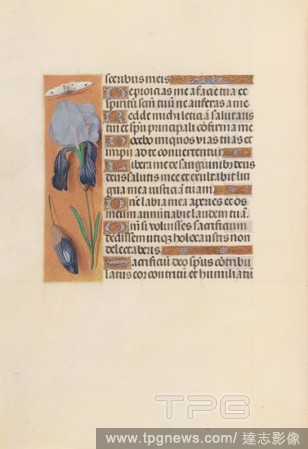 scelibus meis
Ne proicias me a facie tua et
spiritu(m) s(an)c(tu)m tuu(m) ne auferas a me
Redde michi leticia(m) salutaris
tui et sp(irit)u principali co(n)firma me
Docebo iniquos vias tuas et
impii ad te convertentur
Libera me de sanguinib(us) deus
deus salutis mee et exultabit lin
gua mea iusticia(m) tuam
D(omi)ne labia mea aperies et os
meum annuntiabit laudem tua(m)
Q(uonia)m si voluisses sacrificium
dedissem utiq(ue) holocaustis non
delectaberis
Sacrificiu(m) deo sp(iritu)s co(n)tribu
latus cor co(n)tritu(m) et humiliatu(m)
TPG
www.tpgnews.com/ 達志影像